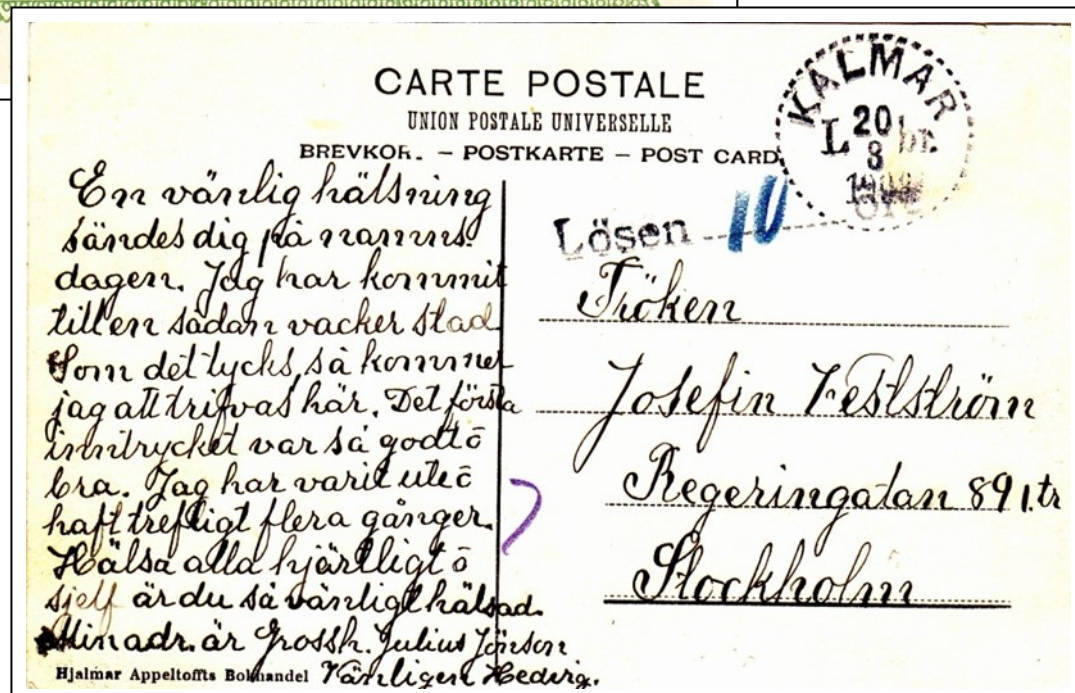 CARTE POSTALE
UNION POSTALE UNIVERSELLE
BREVKOR. – POSTKARTE – POST CARD
KALMAR
L 20 br.
8
Lösen 10
En vänlig hälsning
sändes dig på namns-
dagen. Jag har kommit
till en sådan vacker stad
Som det tycks, så kommer
jag att trifvas här. Det första
inntrycket var så godt ō
bra. Jag har varit ute ō
haft trefligt flera gånger.
Hälsa alla hjärtligt ō
sjelf är du så vänligt hälsad.
Min adr. är Grossh. Julius Jönson
Vänligen Hedvig.
Hjalmar Appeltoffts Bokhandel
Fröken
Josefin Vestström
Regeringatan 89 1.tr
Stockholm